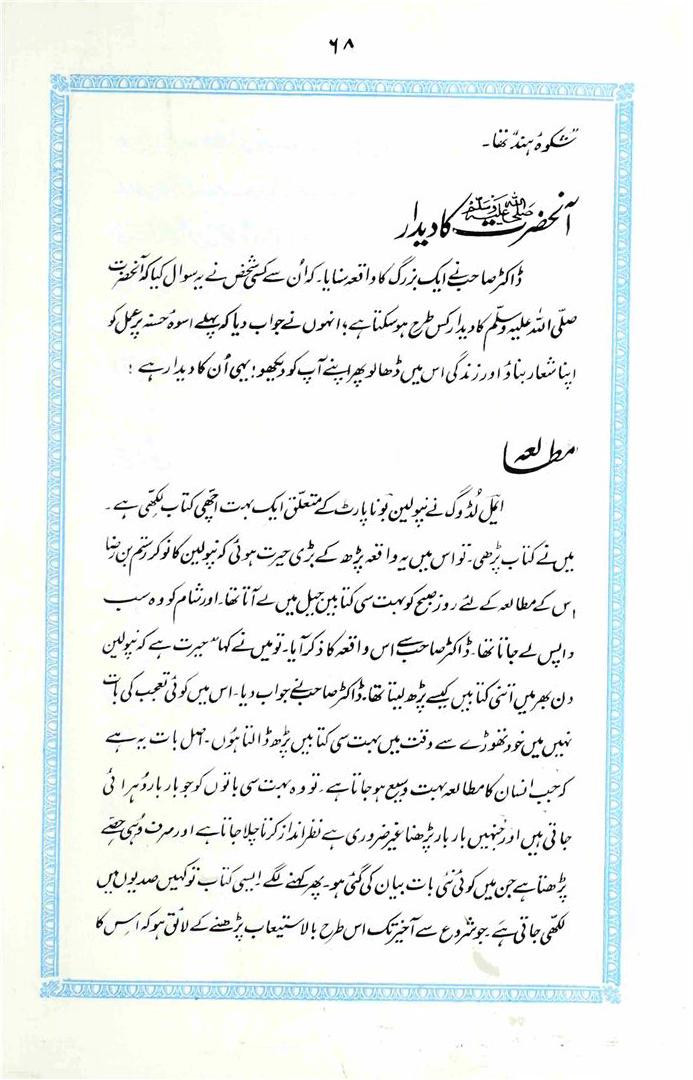 ۶۸
"شکوۂ ہند" تھا۔
آنحضرت صلی اللہ علیہ وسلم کا دیدار
ڈاکٹر صاحب نے ایک بزرگ کا واقعہ سنایا۔ کہ اُن سے کسی شخص نے یہ سوال کیا کہ آنحضرت
صلّی اللہ علیہ وسلّم کا دیدار کس طرح ہو سکتا ہے؛ انہوں نے جواب دیا کہ پہلے اسوۂ حسنہ پر عمل کو
اپنا شعار بناؤ اور زندگی اس میں ڈھالو پھر اپنے آپ کو دیکھو! یہی اُن کا دیدار ہے!
مطالعہ
ایمل لڈوگ نے نپولین بونا پارٹ کے متعلّق ایک بہت اچھی کتاب لکھی ہے۔
میں نے کتاب پڑھی۔ تو اس میں یہ واقعہ پڑھ کے بڑی حیرت ہوئی کہ نپولین کا نوکر رستم بن رضا
اس کے مطالعہ کے لئے روز صبح کو بہت سی کتابیں جیل میں لے آتا تھا۔ اور شام کو وہ سب
واپس لے جاتا تھا۔ ڈاکٹر صاحب سے اس واقعہ کا ذکر آیا۔ تو میں نے کہا "حیرت ہے کہ نپولین
دن بھر میں اتنی کتابیں کیسے پڑھ لیتا تھا۔ ڈاکٹر صاحب نے جواب دیا۔ اس میں کوئی تعجب کی بات
نہیں میں خود تھوڑے سے وقت میں بہت سی کتابیں پڑھ ڈالتا ہوں۔ اصل بات یہ ہے
کہ جب انسان کا مطالعہ بہت وسیع ہو جاتا ہے۔ تو وہ بہت سی باتوں کو جو بار بار دُہرائی
جاتی ہیں اور جنہیں بار بار پڑھنا غیر ضروری ہے نظر انداز کرتا چلا جاتا ہے اور صرف وہی حصّے
پڑھتا ہے جن میں کوئی نئی بات بیان کی گئی ہو۔ پھر کہنے لگے ایسی کتاب تو کہیں صدیوں میں
لکھی جاتی ہے۔ جو شروع سے آخیر تک اس طرح بالاستیعاب پڑھنے کے لائق ہو کہ اس کا